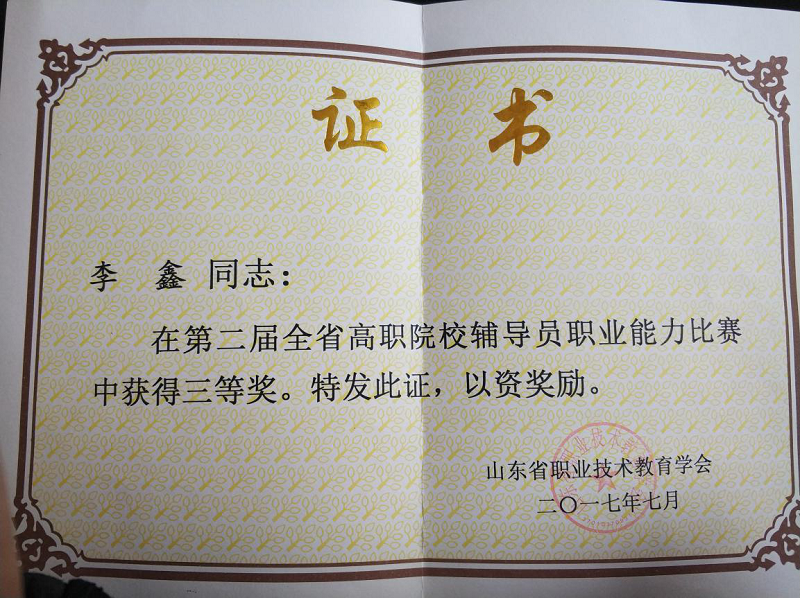 证 书
李 鑫 同志：
在第二届全省高职院校辅导员职业能力比赛
中获得三等奖。特发此证，以资奖励。
山东省职业技术教育学会
二〇一七年七月